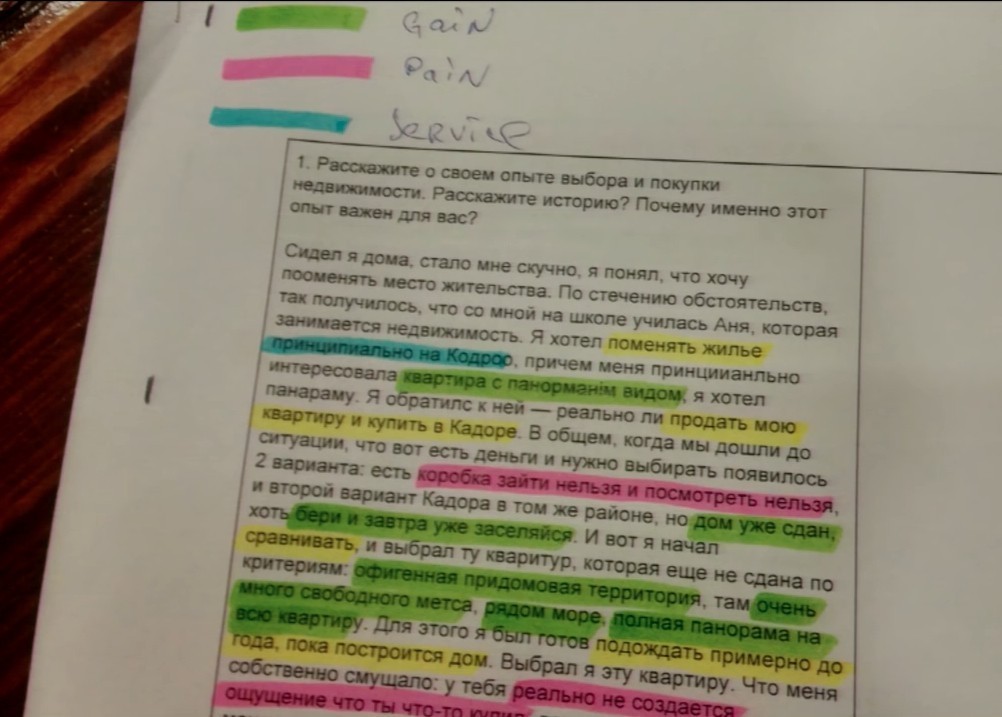 GaiN
PaiN
Service
1. Расскажите о своем опыте выбора и покупки
недвижимости. Расскажите историю? Почему именно этот
опыт важен для вас?
Сидел я дома, стало мне скучно, я понял, что хочу
пооменять место жительства. По стечению обстоятельств,
так получилось, что со мной на школе училась Аня, которая
занимается недвижимость. Я хотел поменять жилье
принципиально на Кодроо, причем меня принциианльно
интересовала квартира с панорманім видом, я хотел
панараму. Я обратилс к ней — реально ли продать мою
квартиру и купить в Кадоре. В общем, когда мы дошли до
ситуации, что вот есть деньги и нужно выбирать появилось
2 варианта: есть коробка зайти нельзя и посмотреть нельзя,
и второй вариант Кадора в том же районе, но дом уже сдан,
хоть бери и завтра уже заселяйся. И вот я начал
сравнивать, и выбрал ту кваритур, которая еще не сдана по
критериям: офигенная придомовая территория, там очень
много свободного метса, рядом море, полная панорама на
всю квартиру. Для этого я был готов подождать примерно до
года, пока построится дом. Выбрал я эту квартиру. Что меня
собственно смущало: у тебя реально не создается
ощущение что ты что-то купил